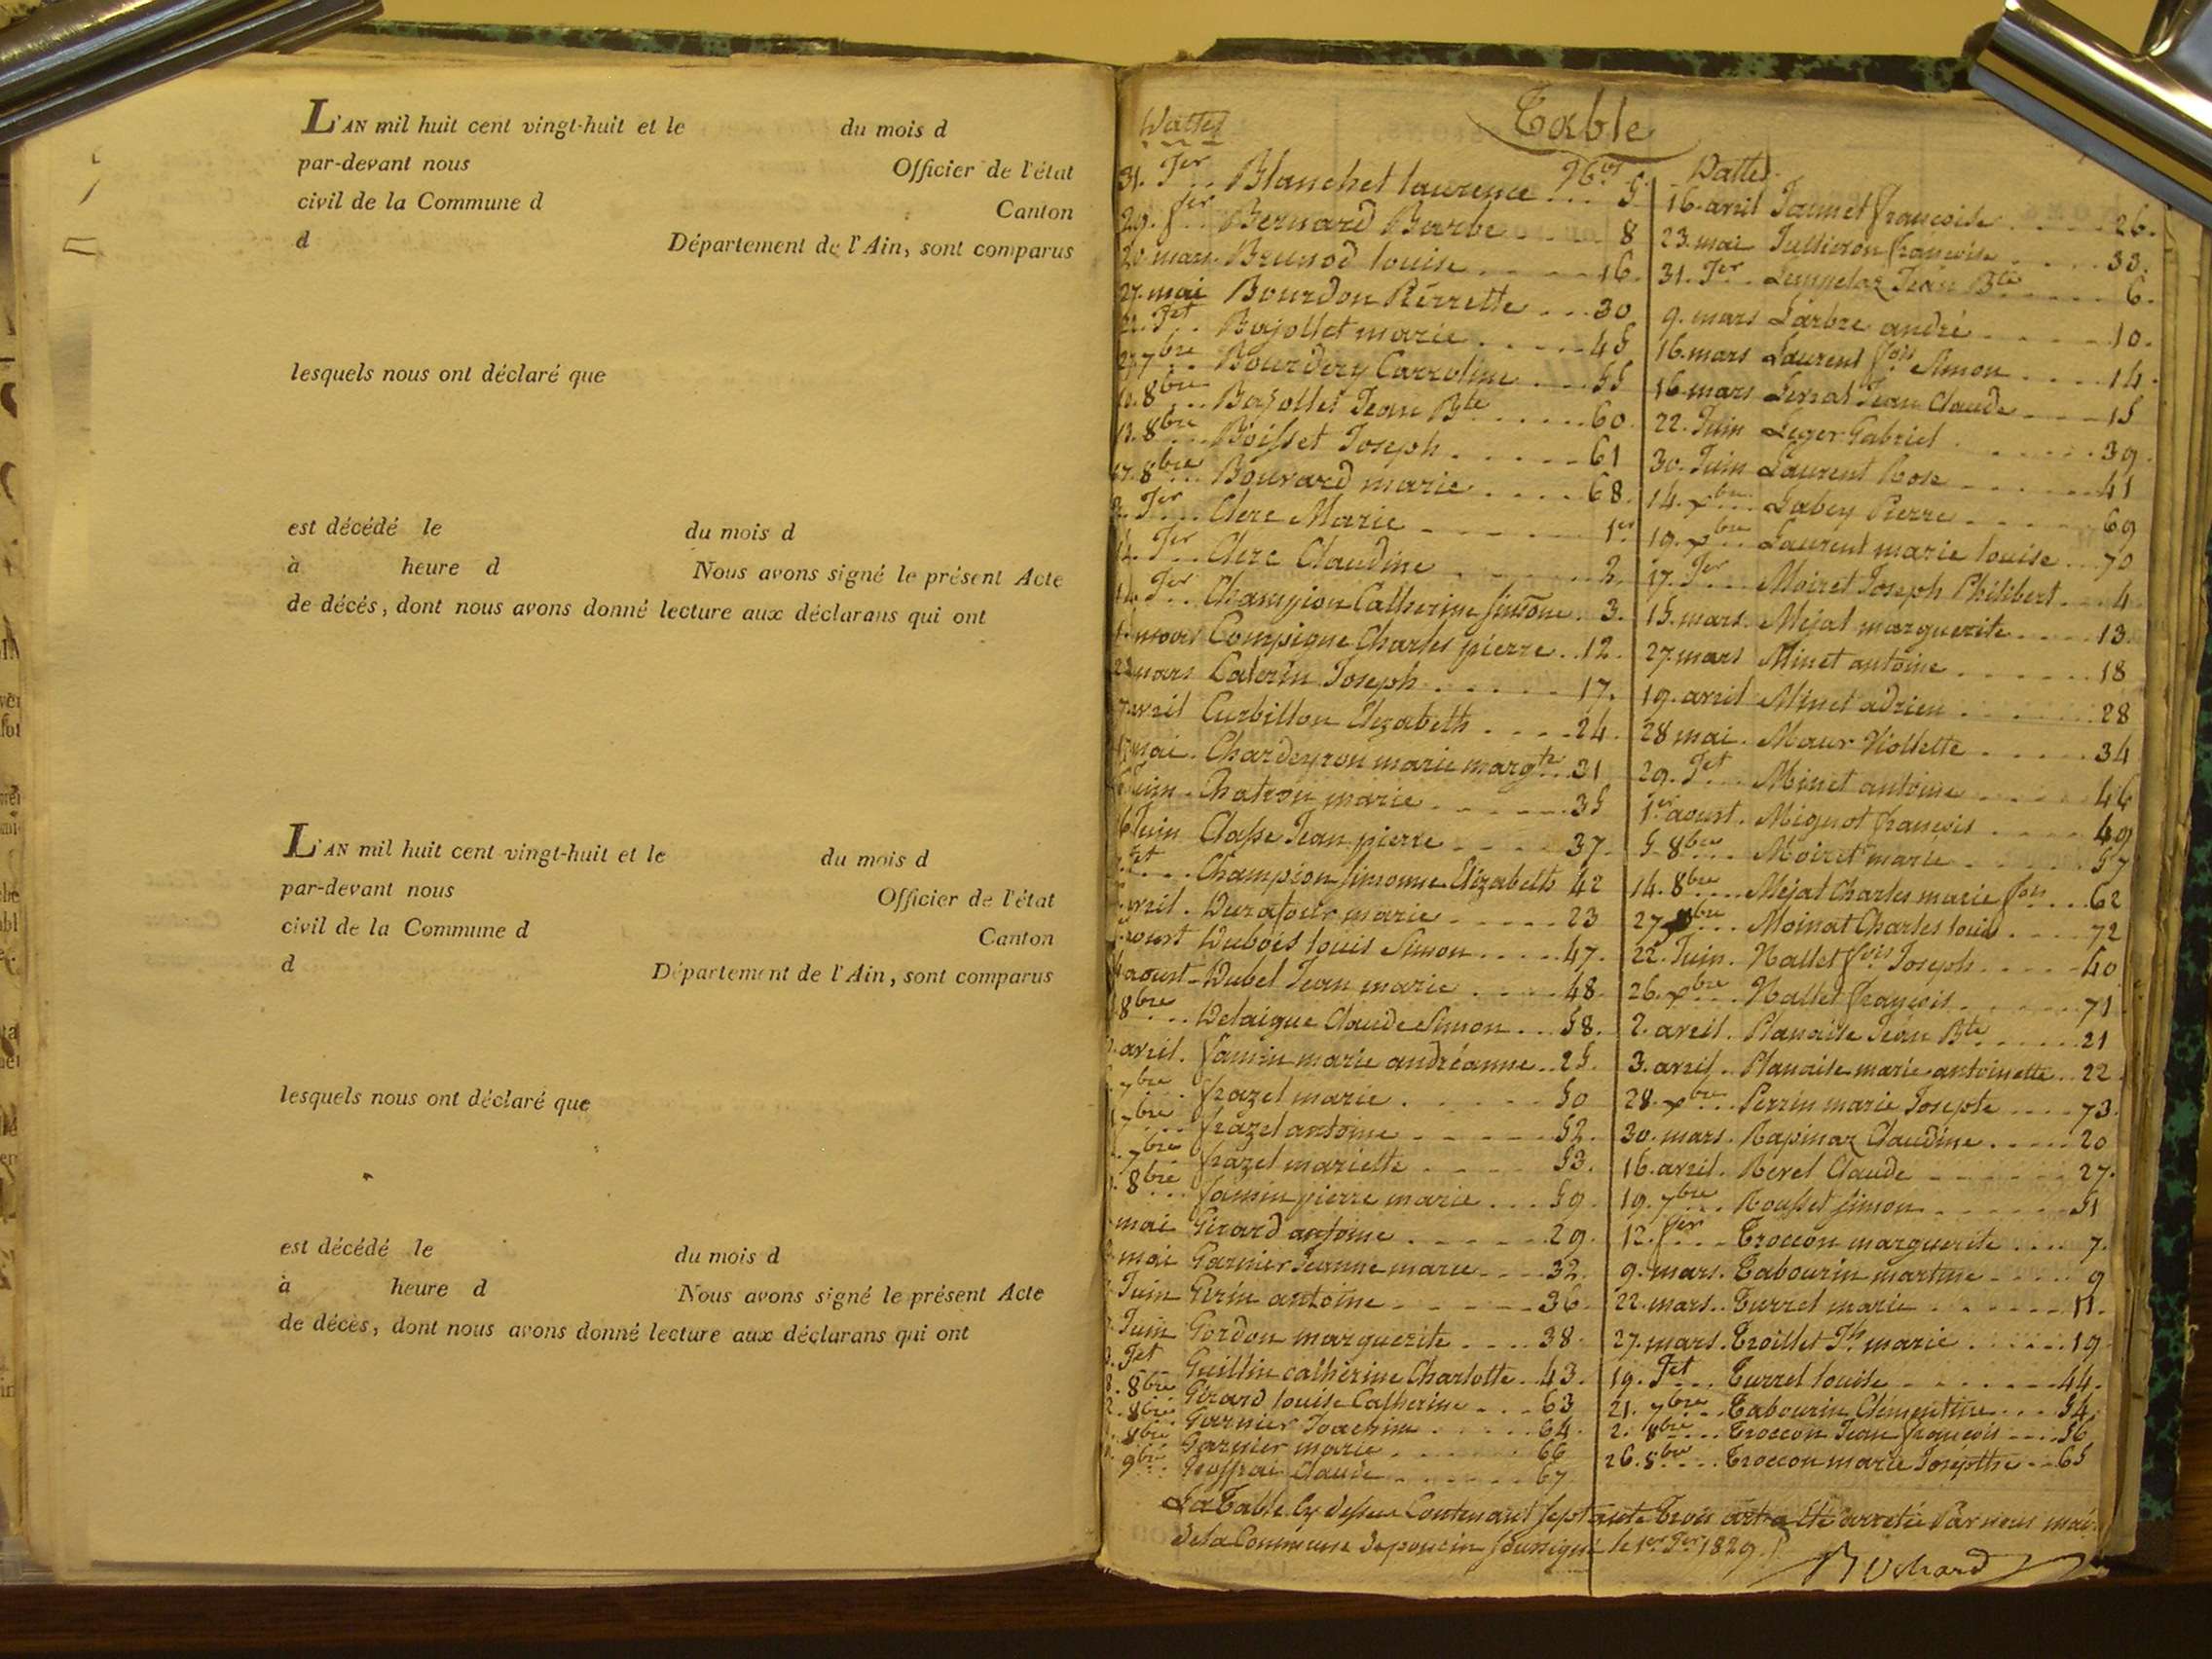 L'AN mil huit cent vingt-huit et le du mois d
par-devant nous Officier de l'état
civil de la Commune d Canton
d Département de l'Ain, sont comparus
lesquels nous ont déclaré que
est décédé le du mois d
à heure d Nous avons signé le présent Acte
de décès, dont nous avons donné lecture aux déclarans qui ont
L'AN mil huit cent vingt-huit et le du mois d
par-devant nous Officier de l'état
civil de la Commune d Canton
d Département de l'Ain, sont comparus
lesquels nous ont déclaré que
est décédé le du mois d
à heure d Nous avons signé le présent Acte
de décès, dont nous avons donné lecture aux déclarans qui ont
Table
Dattes
31. Jer Blanchet laurence 5
29. fer Bernard Barbe 8
20 mars Brunod louise 16.
27. mai Bourdon Pierrette 30
22. Jet Bajollet marie 45
27 7bre Bourdery Carroline 55
8bre Bajollet Jean Bte 60.
13. 8bre Boisset Joseph 61
17. 8bre Bouvard marie 68.
2. Jer Clerc Marie 1er
14. Jer Clerc Claudine 2.
14. Jer Champion Catherine Simone 3.
mars Compigne Charles pierre 12.
22 mars Caterin Joseph 17.
avril Curbillon Elizabeth 24.
mai Chardeyron marie margte 31
Juin Chatron marie 35
16 Juin Classe Jean pierre 37.
Jet Champion simonne Elizabeth 42
avril Durafour marie 23
aoust Dubois louis Simon 47.
aoust Dubel Jean marie 48.
8bre Delaigue Claude Simon 58.
avril. famin marie andréanne 25.
7bre frazel marie 50
7bre frazel antoine 52.
7bre frazel mariette 53.
8bre famin pierre marie 59.
mai Girard antoine 29.
mai Garnier Jeanne marie 32.
Juin Gerin antoine 36.
Juin Gordon marguerite 38.
Jet Guillin catherine Charlotte 43.
8bre Girard louise Catherine 63
8bre Garnier Joachim 64.
8bre Garnier marie 66
9bre Claude 67
Dattes
16. avril Jannet françoise 26.
23. mai Jullieron françoise 33.
31. Jer Jean Bte 6.
9. mars Larbre andré 10.
16. mars Laurent fois Simon 14.
16 mars Jean Claude 15
22. Juin Leger Gabriel 39.
30. Juin Laurent Rose 41
14. xbre Labey Pierre 69
19. xbre Laurent marie louise 70
17. Jer Moiret Joseph Philibert 4
15. mars. Mejat marguerite 13.
27. mars Minet antoine 18
19. avril Minet adrien 28
28 mai. Maur Viollette 34
29. Jet Minet antoine 46
1er aoust. Mignot françois 49
5 8bre Moiret marie 57
14. 8bre Mejat Charles marie fois 62
27 xbre Moinat Charles louis 72
22. Juin. Nallet fois Joseph 40
26. xbre Nallet françois 71
2. avril. Planaise Jean Bte 21
3. avril. Planaise marie antoinette 22
28. xbre Perrin marie Josepte 73.
30. mars. Rapinaz Claudine 20
16. avril. Revel Claude 27.
19. 7bre Rousset Simon 51
12. fer Troccon marguerite 7.
9. mars. Tabourin martine 9
22. mars. Turrel marie 11.
27. mars. Troillet Jh marie 19
19. Jet Turrel louise 44.
21. 7bre Tabourin Clementine 54.
2. 8bre Troccon Jean françois 56
26. 8bre Troccon marie Josepthe 65
La Table Cy dessus Contenant septante Trois été arretée Par nous
de la Commune de poncin soussigné le 1er Jer 1829.